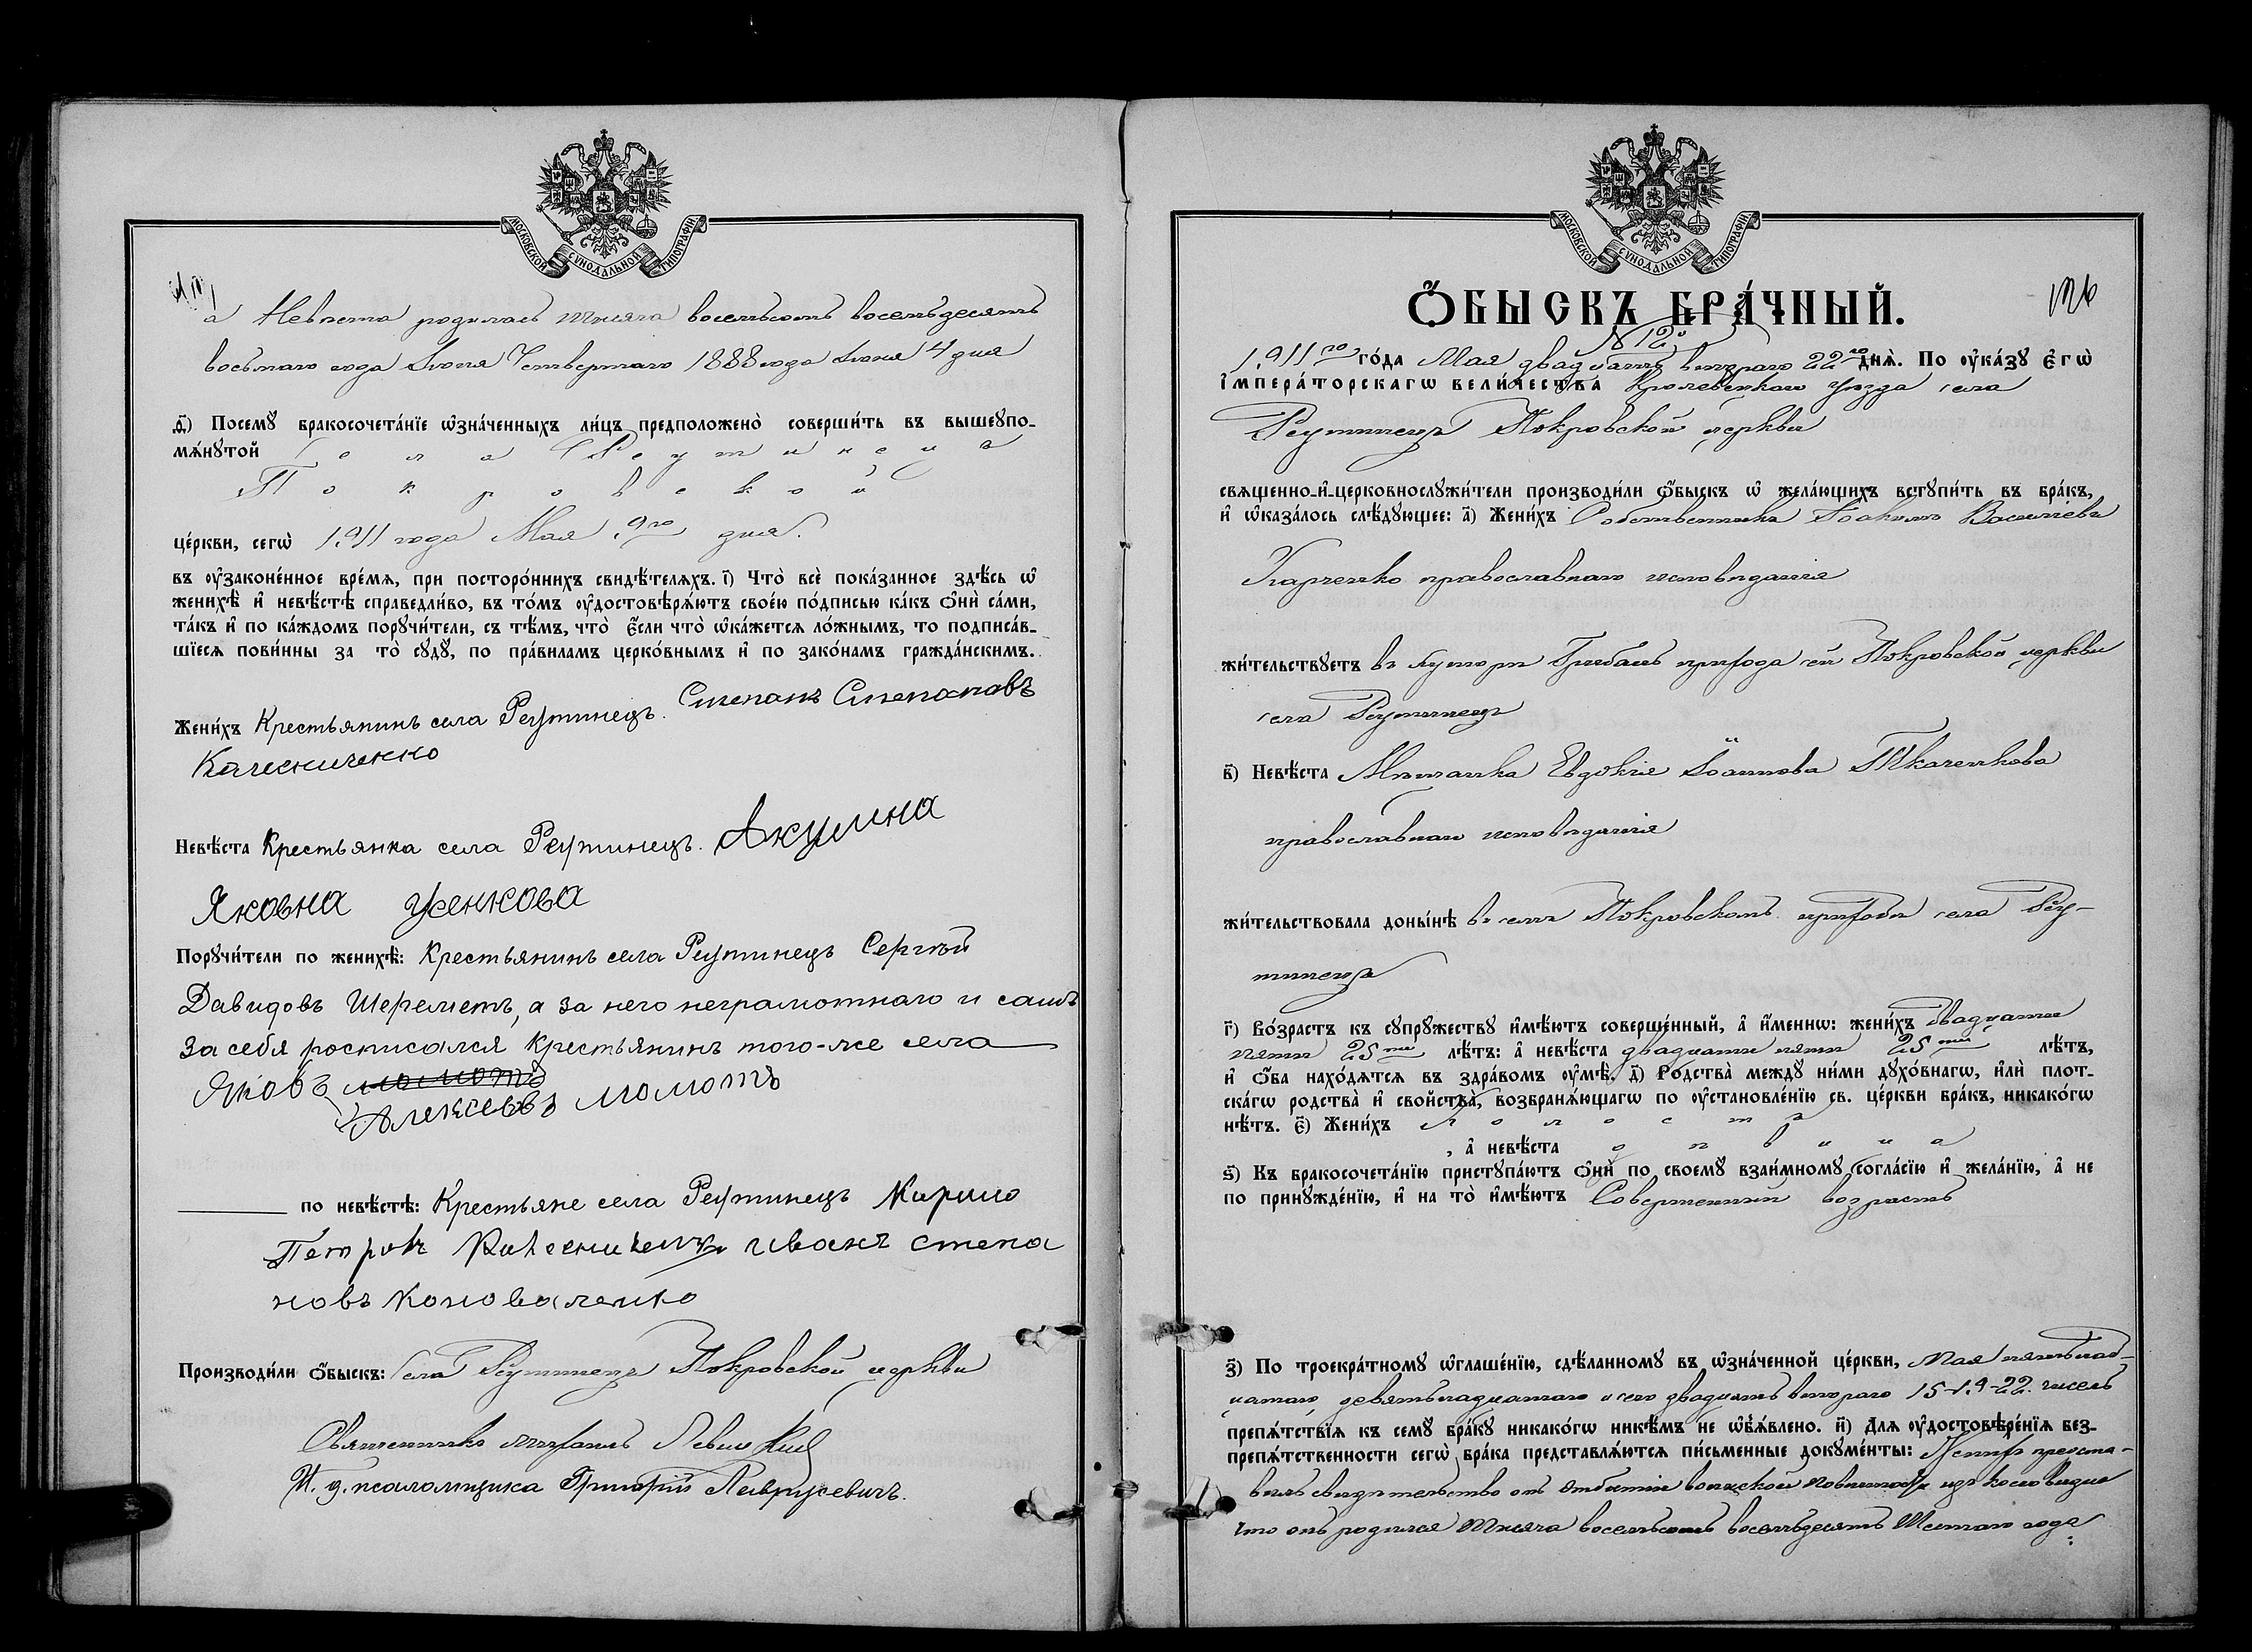 МОСКОВСКОЙ СѴНОДАЛЬНОЙ ТИПОГРАФІИ
а Невѣста родилась тысяча восемьсотъ восемьдесятъ
восьмаго года Іюня Четвертаго 1888 года Іюня 4 дня
ѳ҃) Посемꙋ̀ бракосочета́нїе ѡ҆зна́ченныхъ ли́цъ предположено̀ соверши́ть въ вышеꙋпо-
мѧ́нꙋтой Села Реутинецъ
Покровской
це́ркви, сегѡ̀ 1911 года Мая 9го дня.
въ ᲂу҆законе́нное вре́мѧ, при посторо́ннихъ свидѣ́телѧхъ. і҃) Что̀ всѐ пока́занное здѣ́сь ѡ҆
женихѣ̀ и҆ невѣ́стѣ справедли́во, въ то́мъ ᲂу҆достовѣрѧ́ютъ свое́ю по́дписью ка́къ ѻ҆нѝ са́ми,
та́къ и҆ по ка́ждомъ порꙋчи́тели, съ тѣ́мъ, что̀ є҆́сли что̀ ѡ҆ка́жетсѧ ло́жнымъ, то подписа́в-
шїесѧ пови́нны за то̀ сꙋдꙋ̀, по пра́виламъ церко́внымъ и҆ по зако́намъ гражда́нскимъ.
Жени́хъ Крестьянинъ села Реутинецъ. Степанъ Степановъ
Колесниченко
Невѣ́ста Крестьянка села Реутинецъ. Акулина
Яковна Усенкова
Порꙋчи́тели по женихѣ̀: Крестьянинъ села Реутинецъ Сергѣй
Давидовъ Шереметъ, а за него неграмотнаго и самъ
за себя росписался Крестьянинъ того-же села
Яковъ момотъ
Алексѣевъ момотъ
по невѣ́стѣ: Крестьяне села Реутинецъ Кирило
Петровъ Колесниченко иванъ степа
новъ Коноваленко
Производи́ли ѻ҆́быскъ: Села Реутинецъ Покровской церкви
Священникъ Михаилъ Левицкій
И. д. псаломщика Григорій Лаврусевичъ.
МОСКОВСКОЙ СѴНОДАЛЬНОЙ ТИПОГРАФІИ
Ѻ҆́БЫСКЪ БРА́ЧНЫЙ.
126
№ 12й
1911го го́да Мая двадцать втораго 22го днѧ̀. По ᲂу҆ка́зꙋ є҆гѡ̀
і҆мпера́торскагѡ вели́чества Кролевецкаго уѣзда села
Реутинецъ Покровской церкви
свѧщенно-и҆-церковнослꙋжи́тели производи́ли ѻ҆́быскъ ѡ҆ жела́ющихъ встꙋпи́ть въ бра́къ,
и҆ ѡ҆каза́лось слѣ́дꙋющее: а҃) Жени́хъ Собственникъ Іоакимъ Васильевъ
Харченко православнаго исповѣданія
жи́тельствꙋетъ въ хуторѣ Грибахъ прихода сей Покровской церкви
села Реутинецъ
в҃) Невѣ́ста Мѣщанка Евдокія Іоаннова Ткаченкова
православнаго исповѣданія
жи́тельствовала доны́нѣ въ семъ Покровскомъ приходѣ села Реу-
тинецъ
г҃) Во́зрастъ къ сꙋпрꙋ́жествꙋ и҆мѣ́ютъ соверше́нный, а҆ и҆́меннѡ: жени́хъ двадцати
пяти 25ти лѣ́тъ: а҆ невѣ́ста двадцати пяти 25ти лѣ́тъ,
и҆ ѻ҆́ба нахо́дѧтсѧ въ здра́вомъ ᲂу҆мѣ̀. д҃) Родства̀ междꙋ ни́ми дꙋхо́внагѡ, и҆лѝ плот-
ска́гѡ родства̀ и҆ свойства̀, возбранѧ́ющагѡ по ᲂу҆становле́нїю св. це́ркви бра́къ, никако́гѡ
нѣ́тъ. є҃) Жени́хъ холостъ
, а҆ невѣ́ста дѣвица
ѕ҃) Къ бракосочета́нїю пристꙋпа́ютъ ѻ҆нѝ по своемꙋ̀ взаи́мномꙋ согла́сїю и҆ жела́нїю, а҆ не
по принꙋжде́нїю, и҆ на то̀ и҆мѣ́ютъ Совершенный возрастъ
з҃) По троекра́тномꙋ ѡ҆глаше́нїю, сдѣ́ланномꙋ въ ѡ҆зна́ченной це́ркви, Мая пятьнад-
цатаго, девятьнадцатаго и сего двадцать втораго 15-19-22. чиселъ
препѧ́тствїѧ къ семꙋ̀ бра́кꙋ никако́гѡ никѣ́мъ не ѡ҆б̾ѧ́влено. и҃) Длѧ ᲂу҆достовѣре́нїѧ без-
препѧ́тственности сегѡ̀ бра́ка представлѧ́ютсѧ пи́сьменные докꙋме́нты: Женихъ предста-
вилъ свидѣтельство объ отбытіи воинской повинности изъ коего видно
что онъ родился тысяча восемьсотъ восемьдесятъ Шестаго года